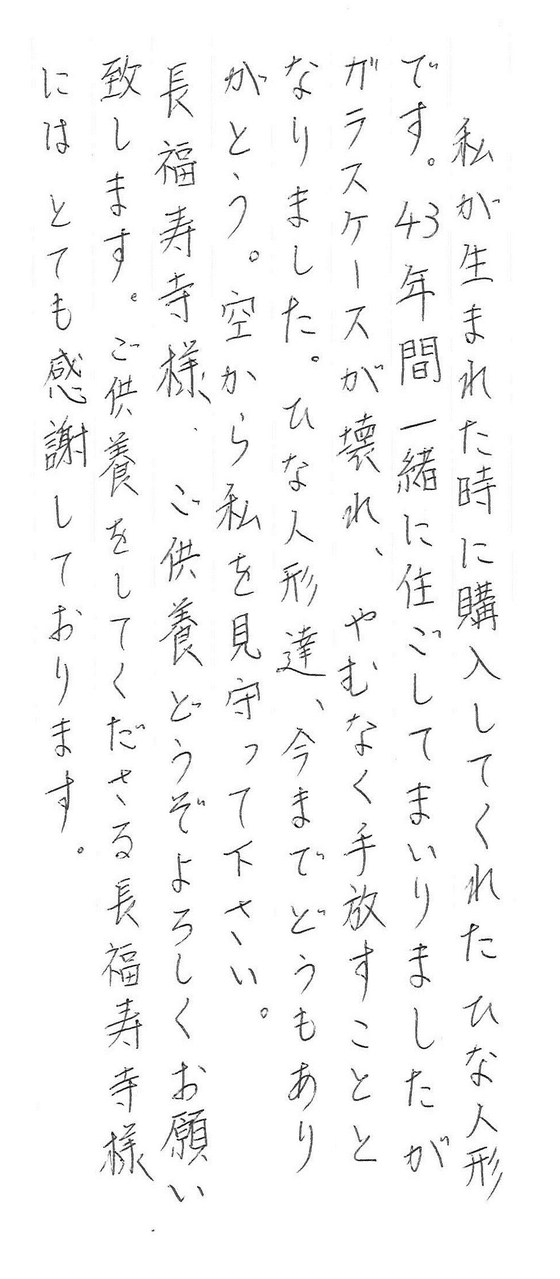 私が生まれた時に購入してくれたひな人形
です。43年間一緒に住ごしてまいりましたが
ガラスケースが壊れ、やむなく手放すことと
なりました。ひな人形達、今までどうもあり
がとう。空から私を見守って下さい。
長福寿寺様、ご供養どうぞよろしくお願い
致します。ご供養をしてくださる長福寿寺様
にはとても感謝しております。